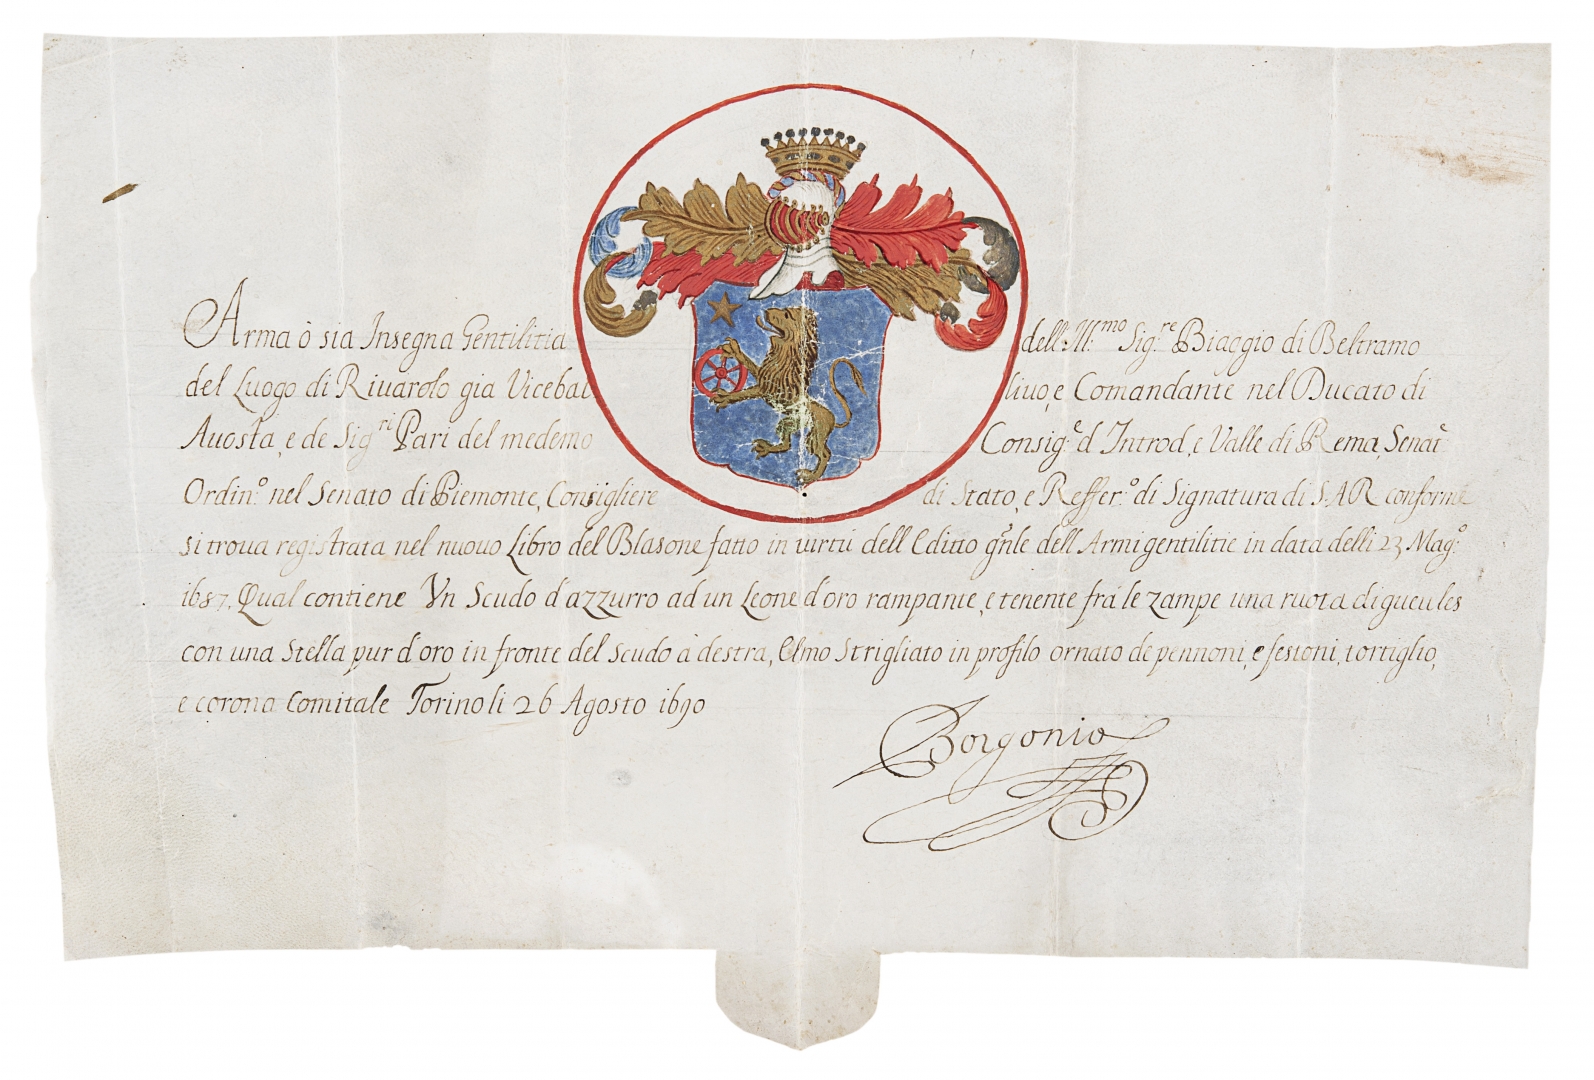 Arma ò sia Insegna Gentilitia dell: Ill:mo Sig:re Biaggio di Beltramo
del Luogo di Riuarolo gia Vicebaliuo, e Comandante nel Ducato di
Auosta, e de Sig:ri Pari del medemo Consig:e d'Introd, e Valle di Rema, Senat:e
Ordin:o nel Senato di Piemonte, Consigliere di Stato, e Reffer:o di Signatura di S.A.R conforme
si troua registrata nel nuouo Libro del Blasone fatto in uirtù dell'Editto gn̄le dell'Armi gentilitie in data delli 23 Mag:o
1687. Qual contiene Vn Scudo d'azzurro ad un Leone d'oro rampante, e tenente frà le zampe una ruota di gueules
con una Stella pur d'oro in fronte del Scudo à destra, Elmo Strigliato in profilo ornato de pennoni, e festoni, tortiglio,
e corona Comitale Torino li 26 Agosto 1690
Borgonio